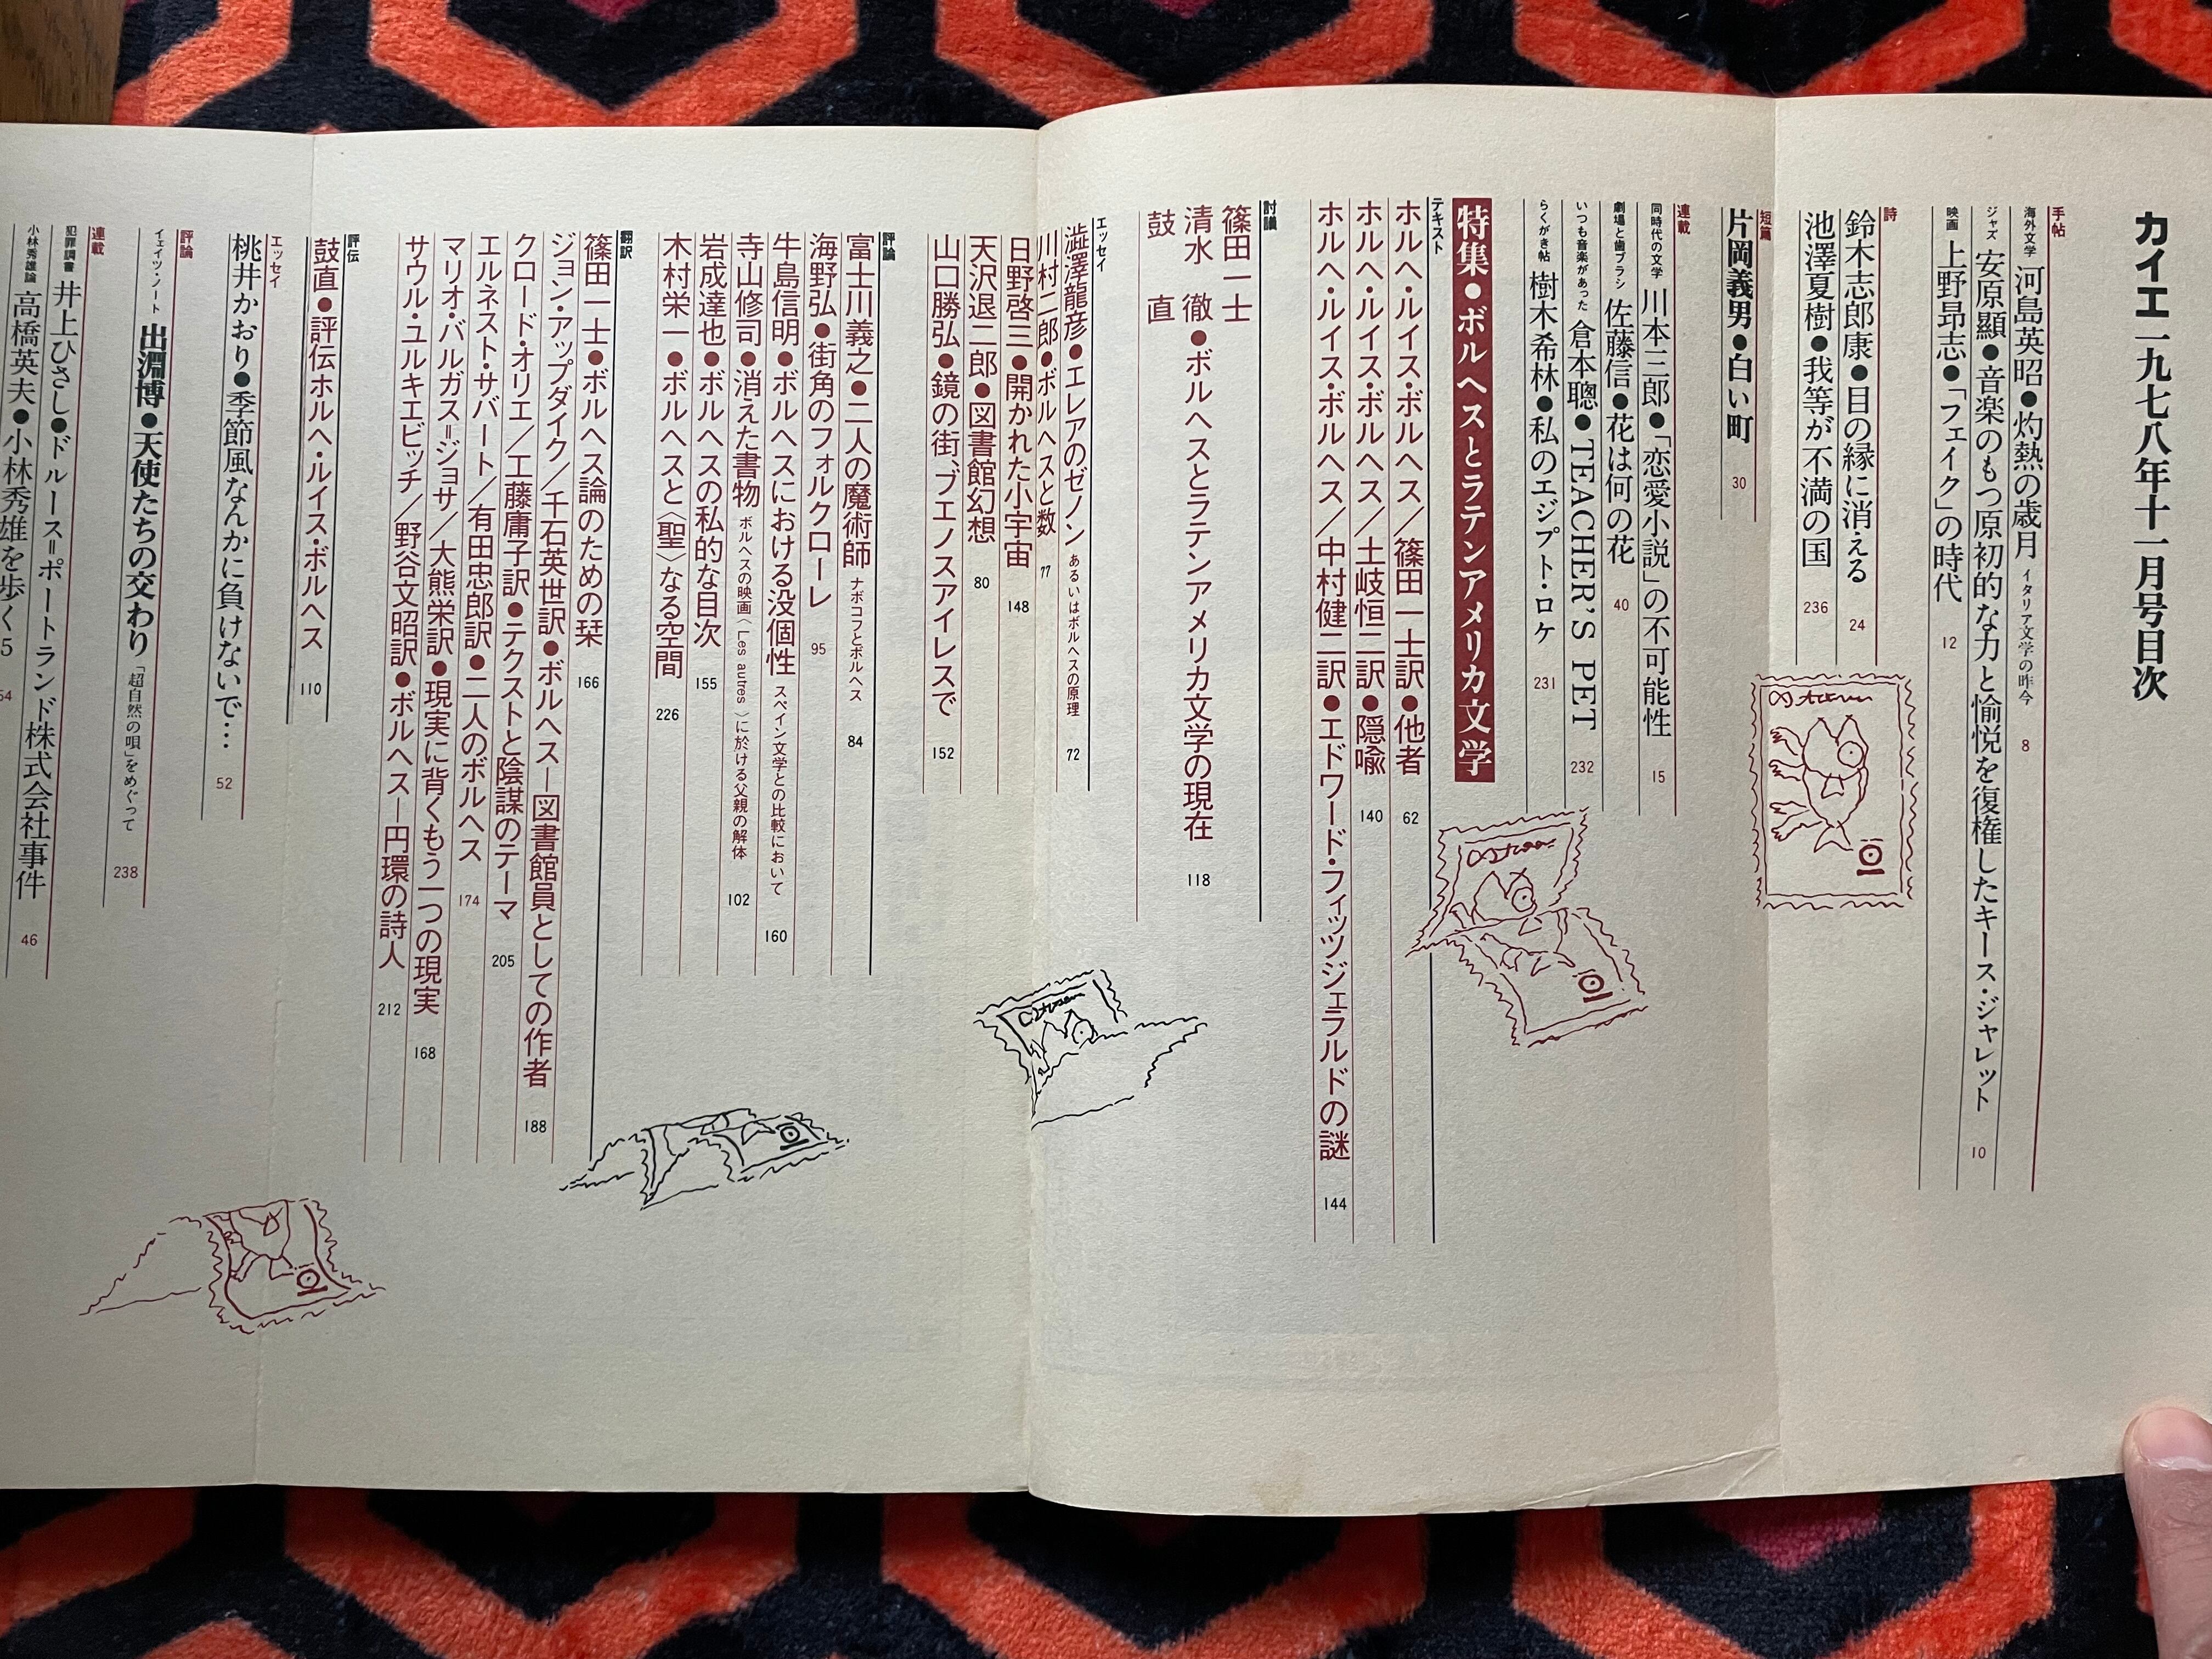 カイエ一九七八年十一月号目次
手帖
海外文学 河島英昭●灼熱の歳月 イタリア文学の昨今 8
ジャズ 安原顯●音楽のもつ原初的な力と愉悦を復権したキース・ジャレット 10
映画 上野昻志●「フェイク」の時代 12
詩
鈴木志郎康●目の縁に消える 24
池澤夏樹●我等が不満の国 236
短篇
片岡義男●白い町 30
連載
同時代の文学 川本三郎●「恋愛小説」の不可能性 15
劇場と歯ブラシ 佐藤信●花は何の花 40
いつも音楽があった 倉本聰●TEACHER'S PET 232
らくがき帖 樹木希林●私のエジプト・ロケ 231
特集●ボルヘスとラテンアメリカ文学
テキスト
ホルヘ・ルイス・ボルヘス／篠田一士訳●他者 62
ホルヘ・ルイス・ボルヘス／土岐恒二訳●隠喩 140
ホルヘ・ルイス・ボルヘス／中村健二訳●エドワード・フィッツジェラルドの謎 144
討議
篠田一士
清水 徹●ボルヘスとラテンアメリカ文学の現在 118
鼓 直
エッセイ
澁澤龍彦●エレアのゼノン あるいはボルヘスの原理 72
川村二郎●ボルヘスと数 77
日野啓三●開かれた小宇宙 148
天沢退二郎●図書館幻想 80
山口勝弘●鏡の街、ブエノスアイレスで 152
評論
富士川義之●二人の魔術師 ナボコフとボルヘス 84
海野弘●街角のフォルクローレ 95
牛島信明●ボルヘスにおける没個性 スペイン文学との比較において 160
寺山修司●消えた書物 ボルヘスの映画〈Les autres〉に於ける父親の解体 102
岩成達也●ボルヘスの私的な目次 155
木村栄一●ボルヘスと〈聖〉なる空間 226
翻訳
篠田一士●ボルヘス論のための栞 166
ジョン・アップダイク／千石英世訳●ボルヘス―図書館員としての作者 188
クロード・オリエ／工藤庸子訳●テクストと陰謀のテーマ 205
エルネスト・サバート／有田忠郎訳●二人のボルヘス 174
マリオ・バルガス＝ジョサ／大熊栄訳●現実に背くもう一つの現実 168
サウル・ユルキエビッチ／野谷文昭訳●ボルヘス―円環の詩人 212
評伝
鼓直●評伝ホルヘ・ルイス・ボルヘス 110
エッセイ
桃井かおり●季節風なんかに負けないで… 52
評論
イェイツ・ノート 出淵博●天使たちの交わり 「超自然の唄」をめぐって 238
連載
犯罪調書 井上ひさし●ドルース＝ポートランド株式会社事件 46
小林秀雄論 高橋英夫●小林秀雄を歩く 5
54